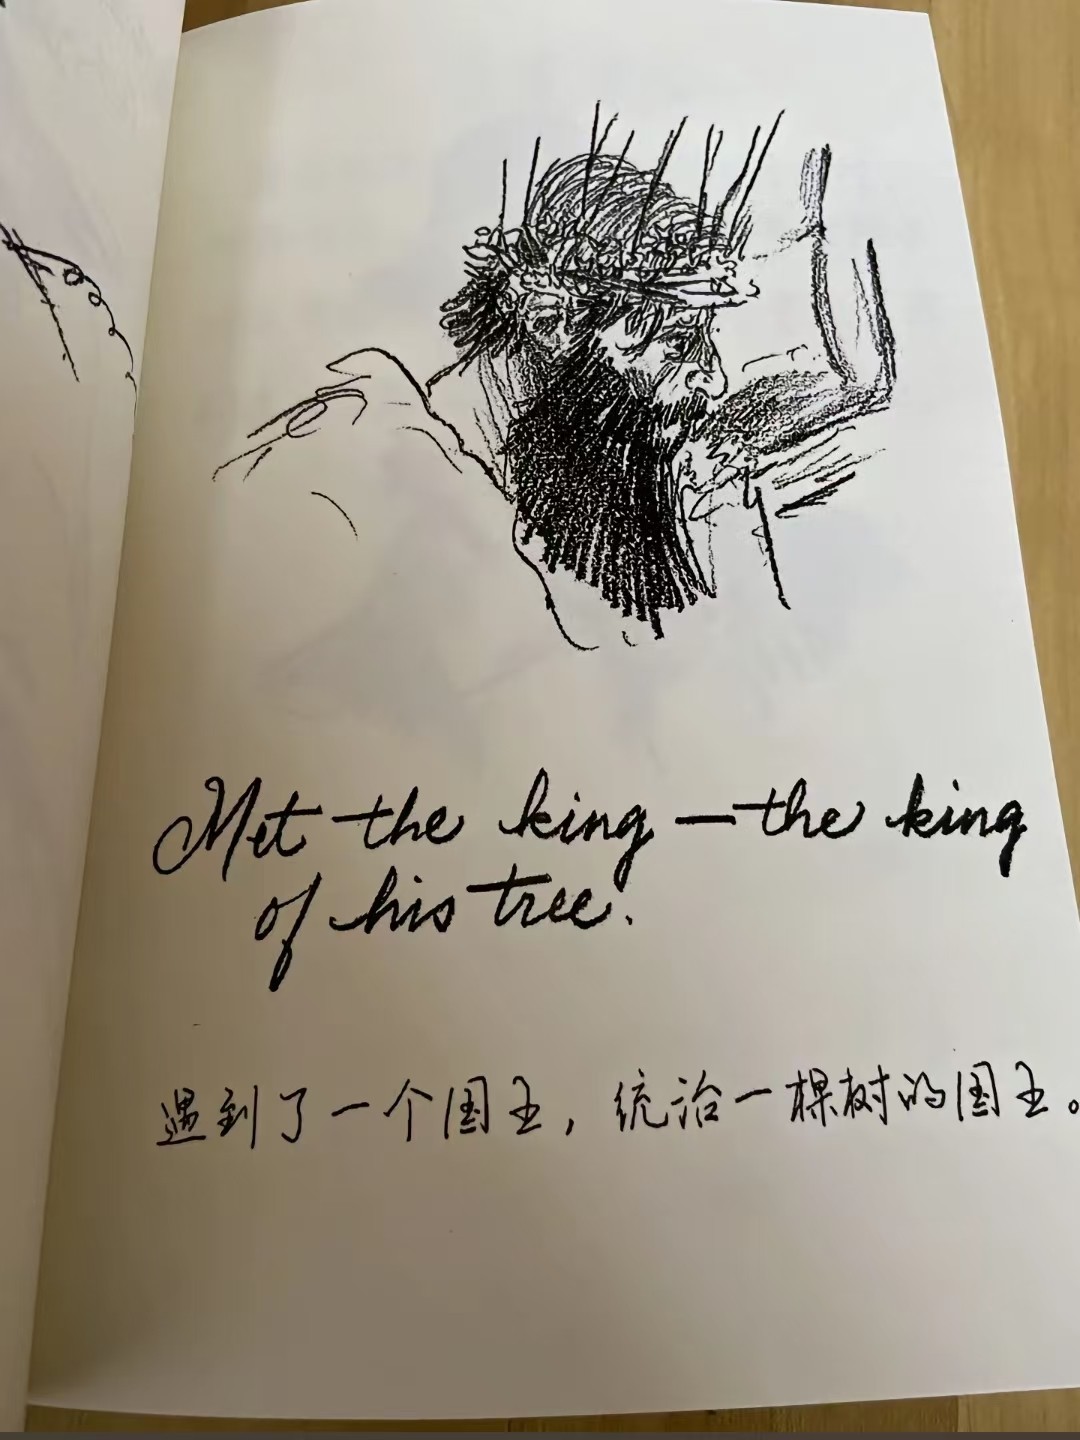 Met the king — the king
of his tree.
遇到了一个国王，统治一棵树的国王。